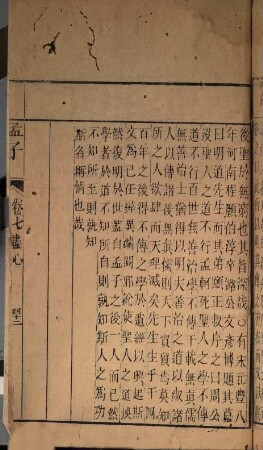 後聖於無窮也其旨深哉○有宋元豊八
年河南程顥伯淳卒潞公文彥博題其墓
曰明道先生而其弟頤正叔序之曰周公
沒聖人之道不行孟軻死聖人之學不傳
道不行百世無善治學不傳千載無眞儒
無善治士猶得以明夫善治之道以淑諸
人以傳諸後無眞儒則天下貿貿焉莫知
所之人欲肆而天理滅矣先生生乎千四
百年之後得不傳之學於遺經以興起斯
文爲己任辨異端闢邪說使聖人之道渙
然復明於世蓋自孟子之後一人而已然
學者於道不知所向則孰知斯人之爲功
不知所至則孰知
斯名之稱情也哉
孟子
卷七盡心